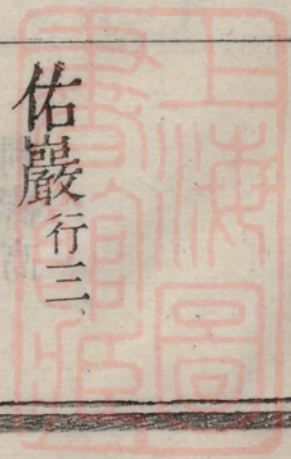 佑巖行三
上海圖
書館藏